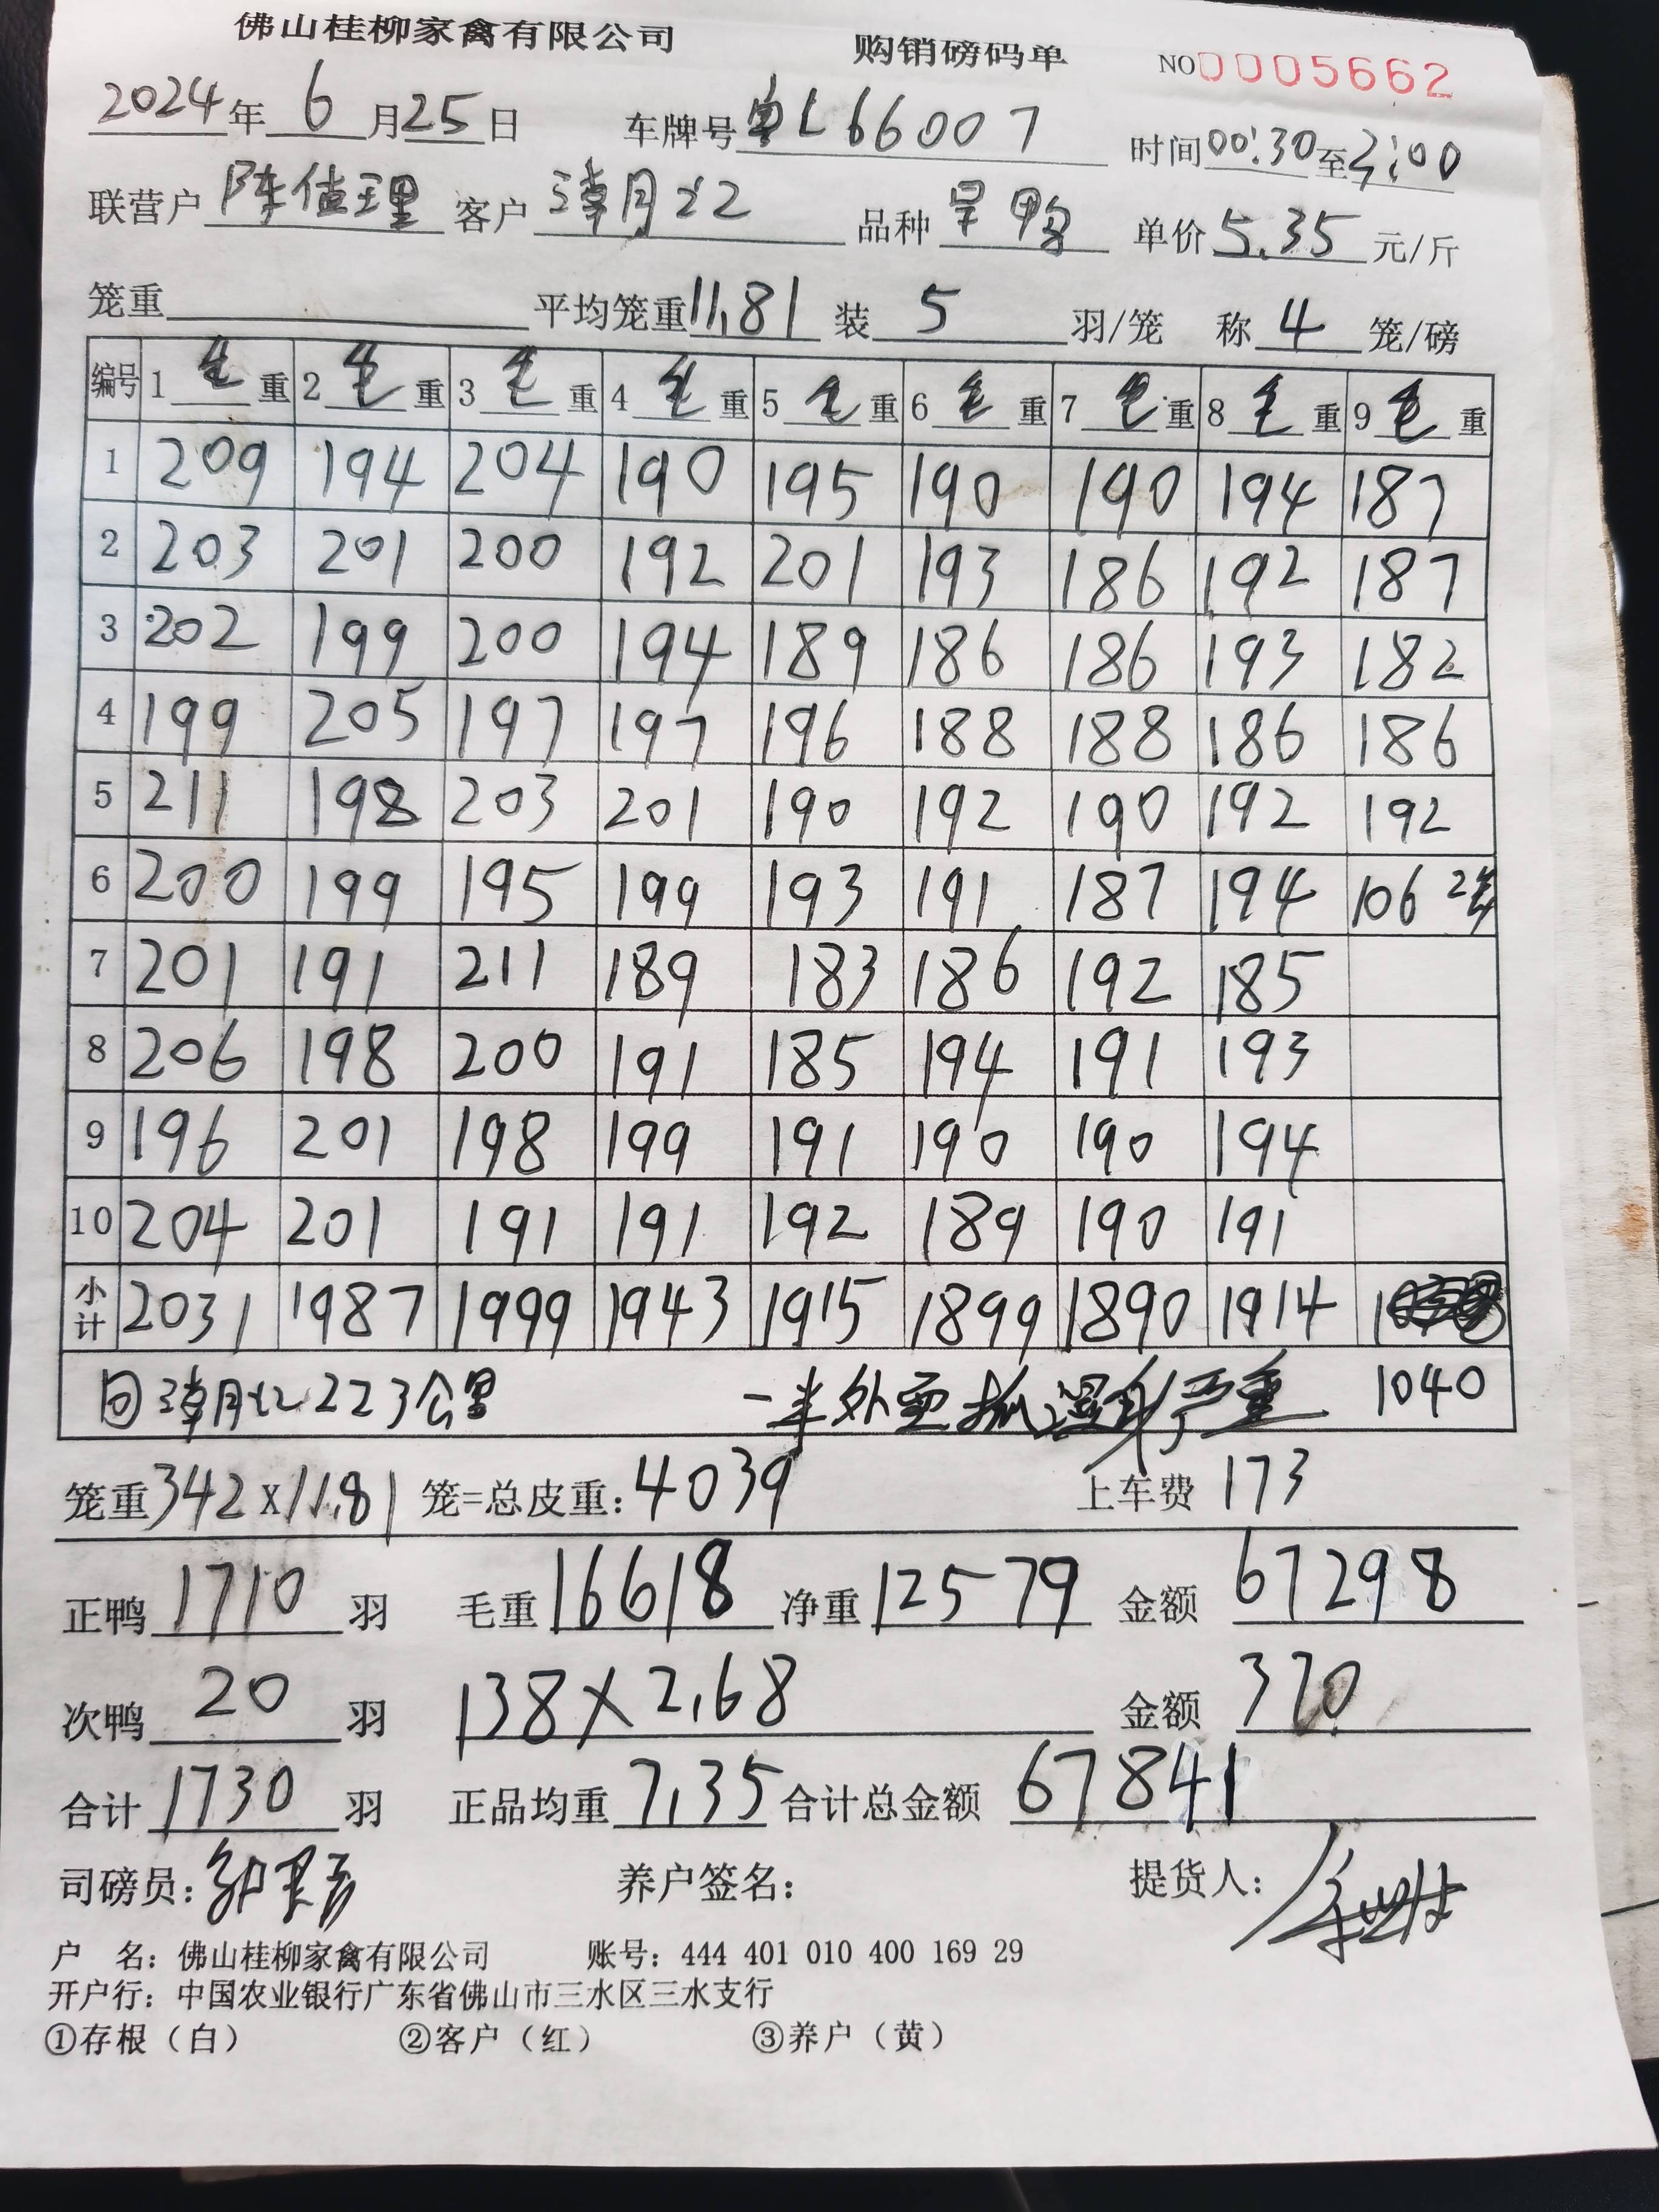 佛山桂柳家禽有限公司 购销磅码单 NO 0005662
2024年 6 月 25 日 车牌号 粤L66007 时间 00:30 至 2:00
联营户 陈值理 客户 漳月红 品种 旱鸭 单价 5.35 元/斤
笼重 平均笼重 11.81 装 5 羽/笼 称 4 笼/磅
编号 1 毛 重 2 毛 重 3 毛 重 4 毛 重 5 毛 重 6 毛 重 7 毛 重 8 毛 重 9 毛 重
1 209 194 204 190 195 190 190 194 187
2 203 201 200 192 201 193 186 192 187
3 202 199 200 194 189 186 186 193 182
4 199 205 197 197 196 188 188 186 186
5 211 198 203 201 190 192 190 192 192
6 200 199 195 199 193 191 187 194 106 2笼
7 201 191 211 189 183 186 192 185
8 206 198 200 191 185 194 191 193
9 196 201 198 199 191 190 190 194
10 204 201 191 191 192 189 190 191
小计 2031 1987 1999 1943 1915 1899 1890 1914
回漳月红223公里 一半外面抓湿身严重 1040
笼重 342 x 11.81 笼=总皮重: 4039 上车费 173
正鸭 1710 羽 毛重 16618 净重 12579 金额 67298
次鸭 20 羽 138 X 2.68 金额 370
合计 1730 羽 正品均重 7.35 合计总金额 67841
司磅员: 养户签名: 提货人:
户 名: 佛山桂柳家禽有限公司 账号: 444 401 010 400 169 29
开户行: 中国农业银行广东省佛山市三水区三水支行
①存根（白） ②客户（红） ③养户（黄）